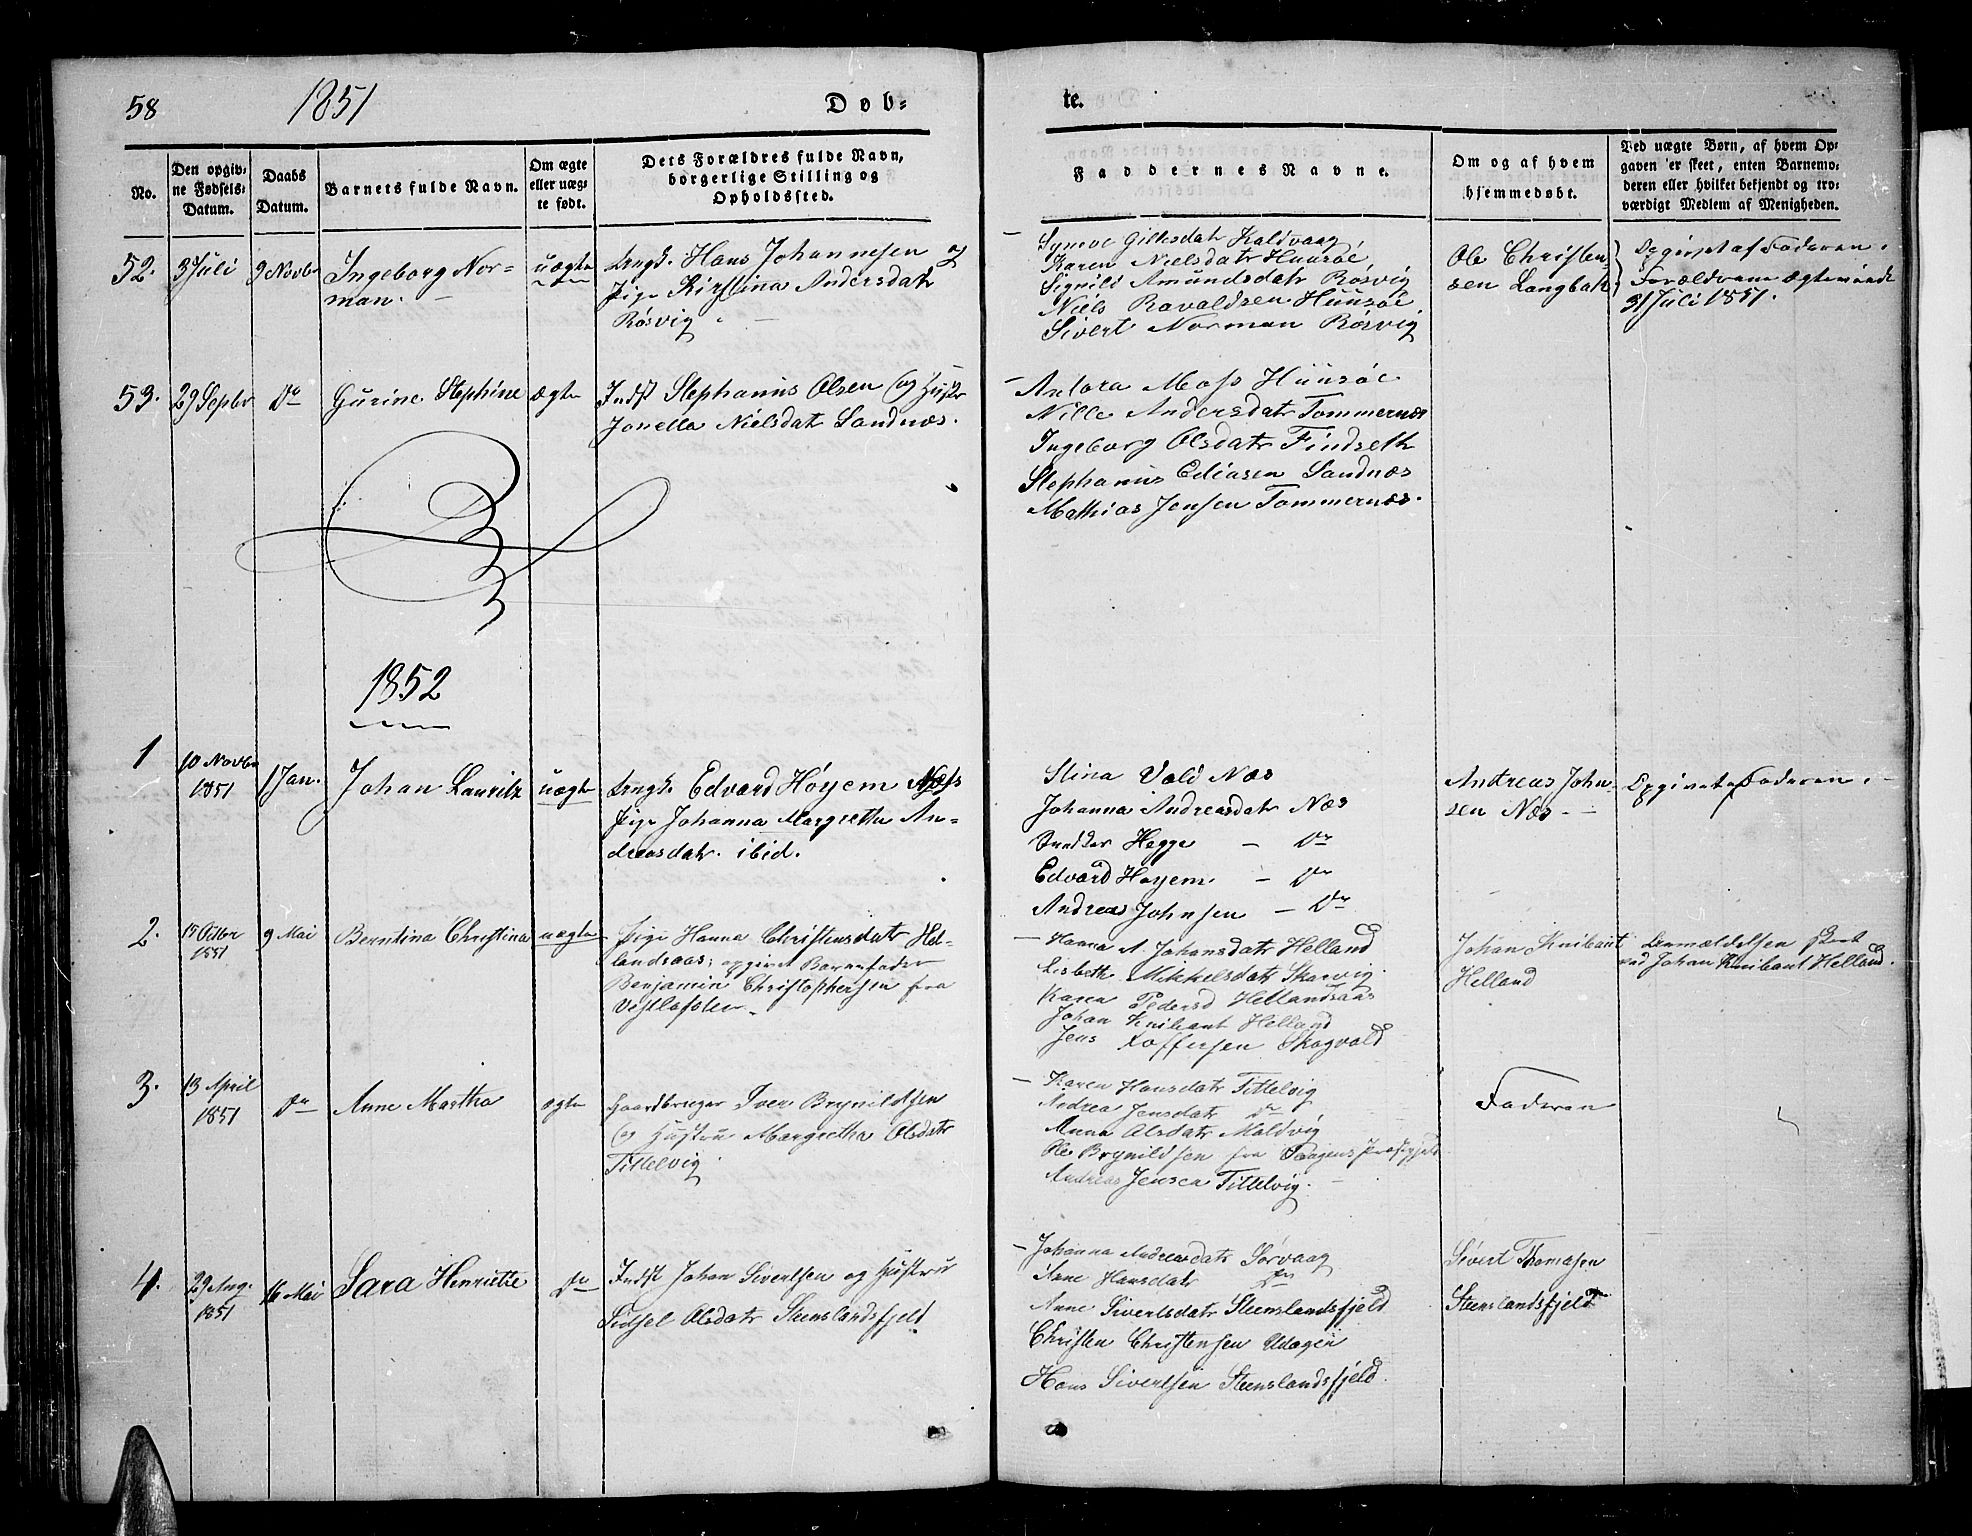 58
1851
Døb-
te.
No.
Den opgiv-
ne Fødsels-
Datum.
Daabs
Datum.
Barnets fulde Navn.
Om ægte
eller uæg-
te født.
Dets Forældres fulde Navn,
borgerlige Stilling og
Opholdssted.
Faddernes Navne.
Om og af hvem
hjemmedøbt.
Ved uægte Børn, af hvem Op-
gaven er skeet, enten Barnemo-
deren eller hvilket bekjendt og tro-
værdigt Medlem af Menigheden.
52.
3 Juli
9 Novbr
Ingeborg Nor-
man.
uægte
Ungk. Hans Johannesen og
Pige Kirstina Andersdatr
Røsvig
Syneve Kaldvaag
Karen Nielsdatr Huusøe
Signild Amundsdatr Røsvig
Niels Ravaldsen Huusøe
Sivert Norman Røsvig
Ole Christen-
sen Langbak
Opgivet af Faderen.
Forældrene ægteviede
31 Juli 1851.
53.
29 Septbr
Do
Gurine Stephine
ægte
Indst Stephanus Olsen og Hustr
Jonella Nielsdatr Sandnæs.
Antora Moss Huusøe
Nille Andersdatr Tommernæs
Ingeborg Olsdatr Findseth
Stephanus Ediasen Sandnæs
Mathias Jensen Tommernæs.
1852
1
10 Novbr
1851
1 Jan.
Johan Lauritz
uægte
Ungk. Edvard Høyem Næss
Pige Johanna Margretha An-
dreasdatr. ibid.
Stina Vold Næs
Johanna Andreasdatr Næs
Hegge - Do
Edvard Høyem - Do
Andreas Johnsen - Do
Andreas John-
sen Næs -
Opgivet Faderen.
2.
15 Octbr
1851
9 Mai
Berntina Christina
uægte
Pige Hanna Christensdatr Hel-
landsaas; opgivet Barnefader
Benjamin Christophersen fra
- Hanna A. Johansdatr Helland
Lisbeth Mikkelsdatr Skarvig.
Karen Pedersd Hellandsaas
Johan Knibant Helland
Jens Toffersen Skogvold
Johan Knibant
Helland
Anmældelsen skeet
ved Johan Knibant Helland.
3.
13 April
1851
Do
Anne Martha
ægte
Gaardbruger Iver Brynildsen
og Hustru Margretha Olsdatr
Tittelvig.
- Karen Hansdatr Tittelvig
Andrea Jensdatr Do
Anna Olsdatr Maldvig
Ole Brynildsen fra Præstgjeld
Andreas Jensen Tittelvig.
Faderen
4.
29 Aug.
1851
16 Mai
Sara Henriette
Do
Indst Johan Sivertsen og Hustru
Sidsel Olsdatr Steenslandsfjeld
- Johanna Andreasdatr Sørvaag
Anne Hansdatr Do
Anne Sivertsdatr Steenslandsfjeld
Christen Christensen
Hans Sivertsen Steenslandsfjeld
Sivert Thomasen
Steenslandsfjeld